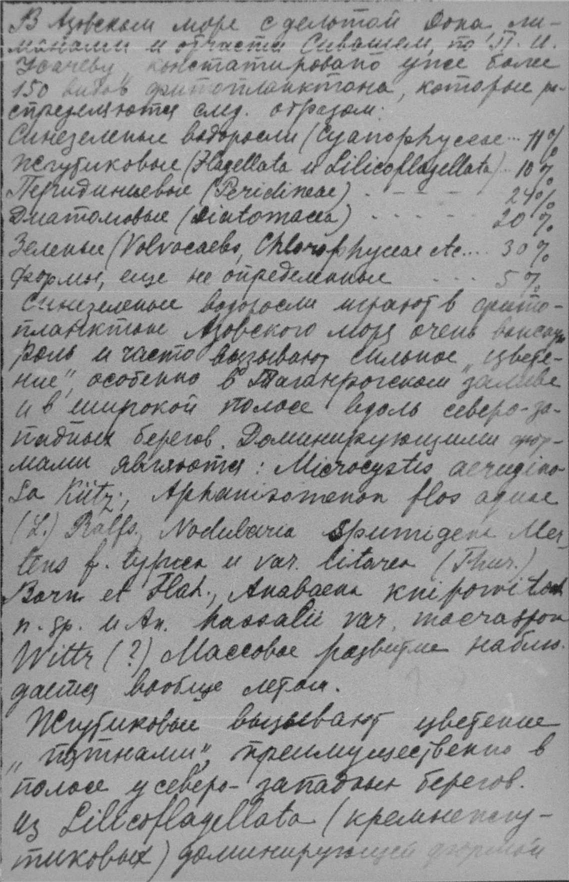 В Азовском море с дельтой Дона, ли-
манами и отчасти Сивашем, по П. И.
Усачеву констатировано уже более
150 видов фитопланктона, которые ра-
спределяются след. образом:
Синезеленые водоросли (Cyanophyceae ... 11%
Жгутиковые (Flagellata и Lilicoflagellata) .. 10%
Перидиниевые (Peridineae) - - - - - 24%
Диатомовые (Diatomacea) . . . . . . 20%
Зеленые (Volvocaebo, Chlorophyceae Ac... 30%
Формы, еще не определенные .... 5%
Синезеленые водоросли играют в фито-
планктоне Азовского моря очень
роль и часто вызывают сильное „цвете-
ние", особенно в Таганрогском заливе
и в широкой полосе вдоль северо-за-
падных берегов. Доминирующими фор-
мами являются: Microcystis aerugino-
sa Kütz., Aphanizomenon flos aquae
(L.) Ralfs, Nodularia spumigena Mer-
tens f. typica и var. litorea (Thur.)
Born. et Flah., Anabaena knipowitschi
n. sp. и An. hassalii var. macrospora
Wittr (?) Массовое развитие наблю-
дается вообще летом.
Жгутиковые вызывают цветение
„пятнами", преимущественно в
полосе у северо-западных берегов.
Из Lilicoflagellata (кремнежгу-
тиковых) доминирующей формой